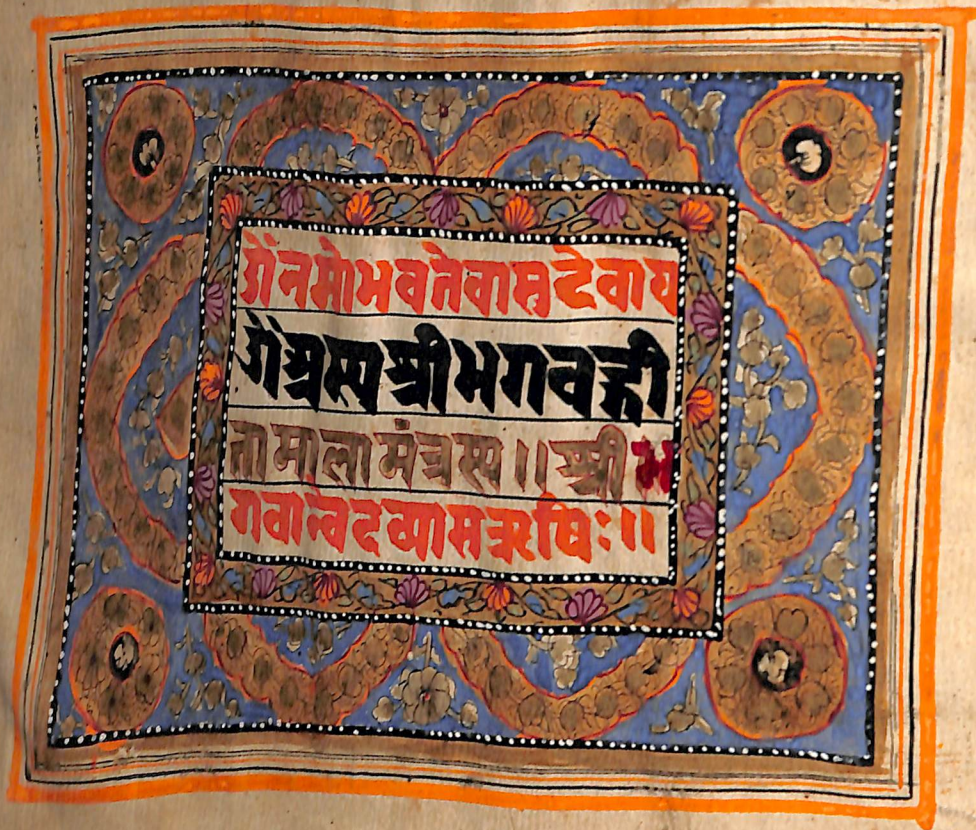 ॐनमोभवतेवासुदेवाय
ॐअस्यश्रीभगवद्गी
तामालामंत्रस्य॥श्रीभ
गवान्वेदव्यासऋषिः॥